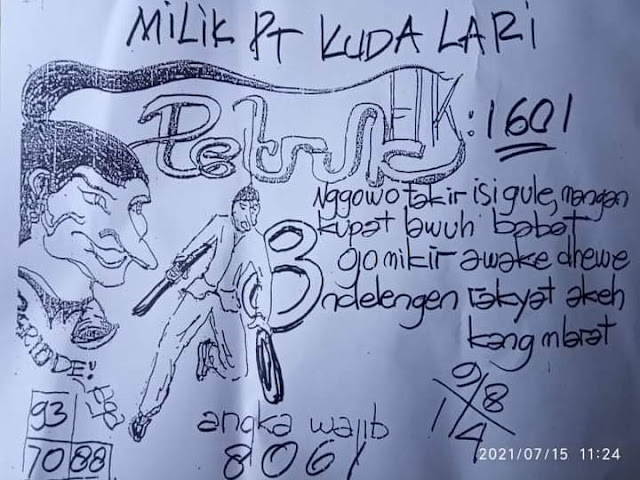 MILIK PT KUDA LARI
Petruk
FIK: 1601
Nggowo takir isi gule, mangan
kupat lawuh babat
ojo mikir awake dhewe
ndelengen rakyat akeh
kang mlarat
3
PERIODE!
93
70 88
angka wajib
8061
9/8
1/4
2021/07/15 11:24